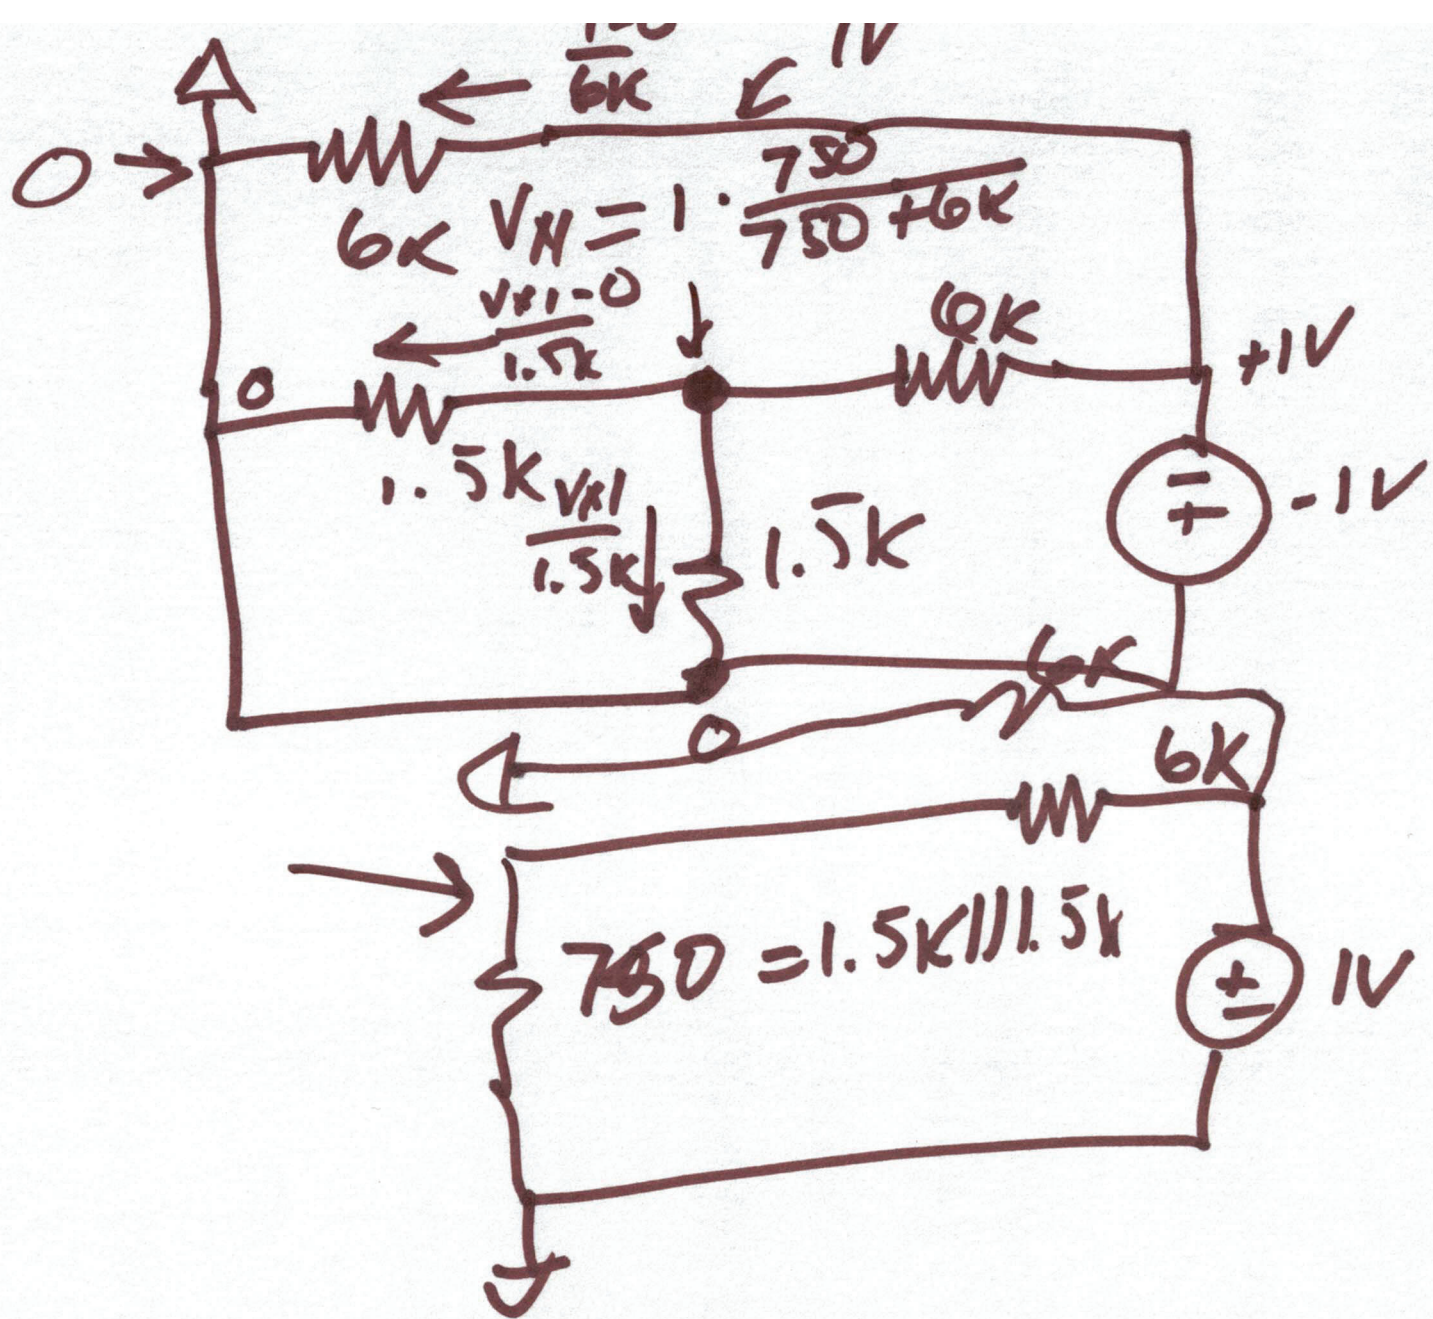 6K
1V
0
750
VX1 = 1 · 750 + 6K
6K
VX1-0
1.5K
6K
+1V
0
1.5K
VX1
1.5K
1.5K
- +
-1V
6K
0
6K
750 = 1.5K || 1.5K
+ -
1V